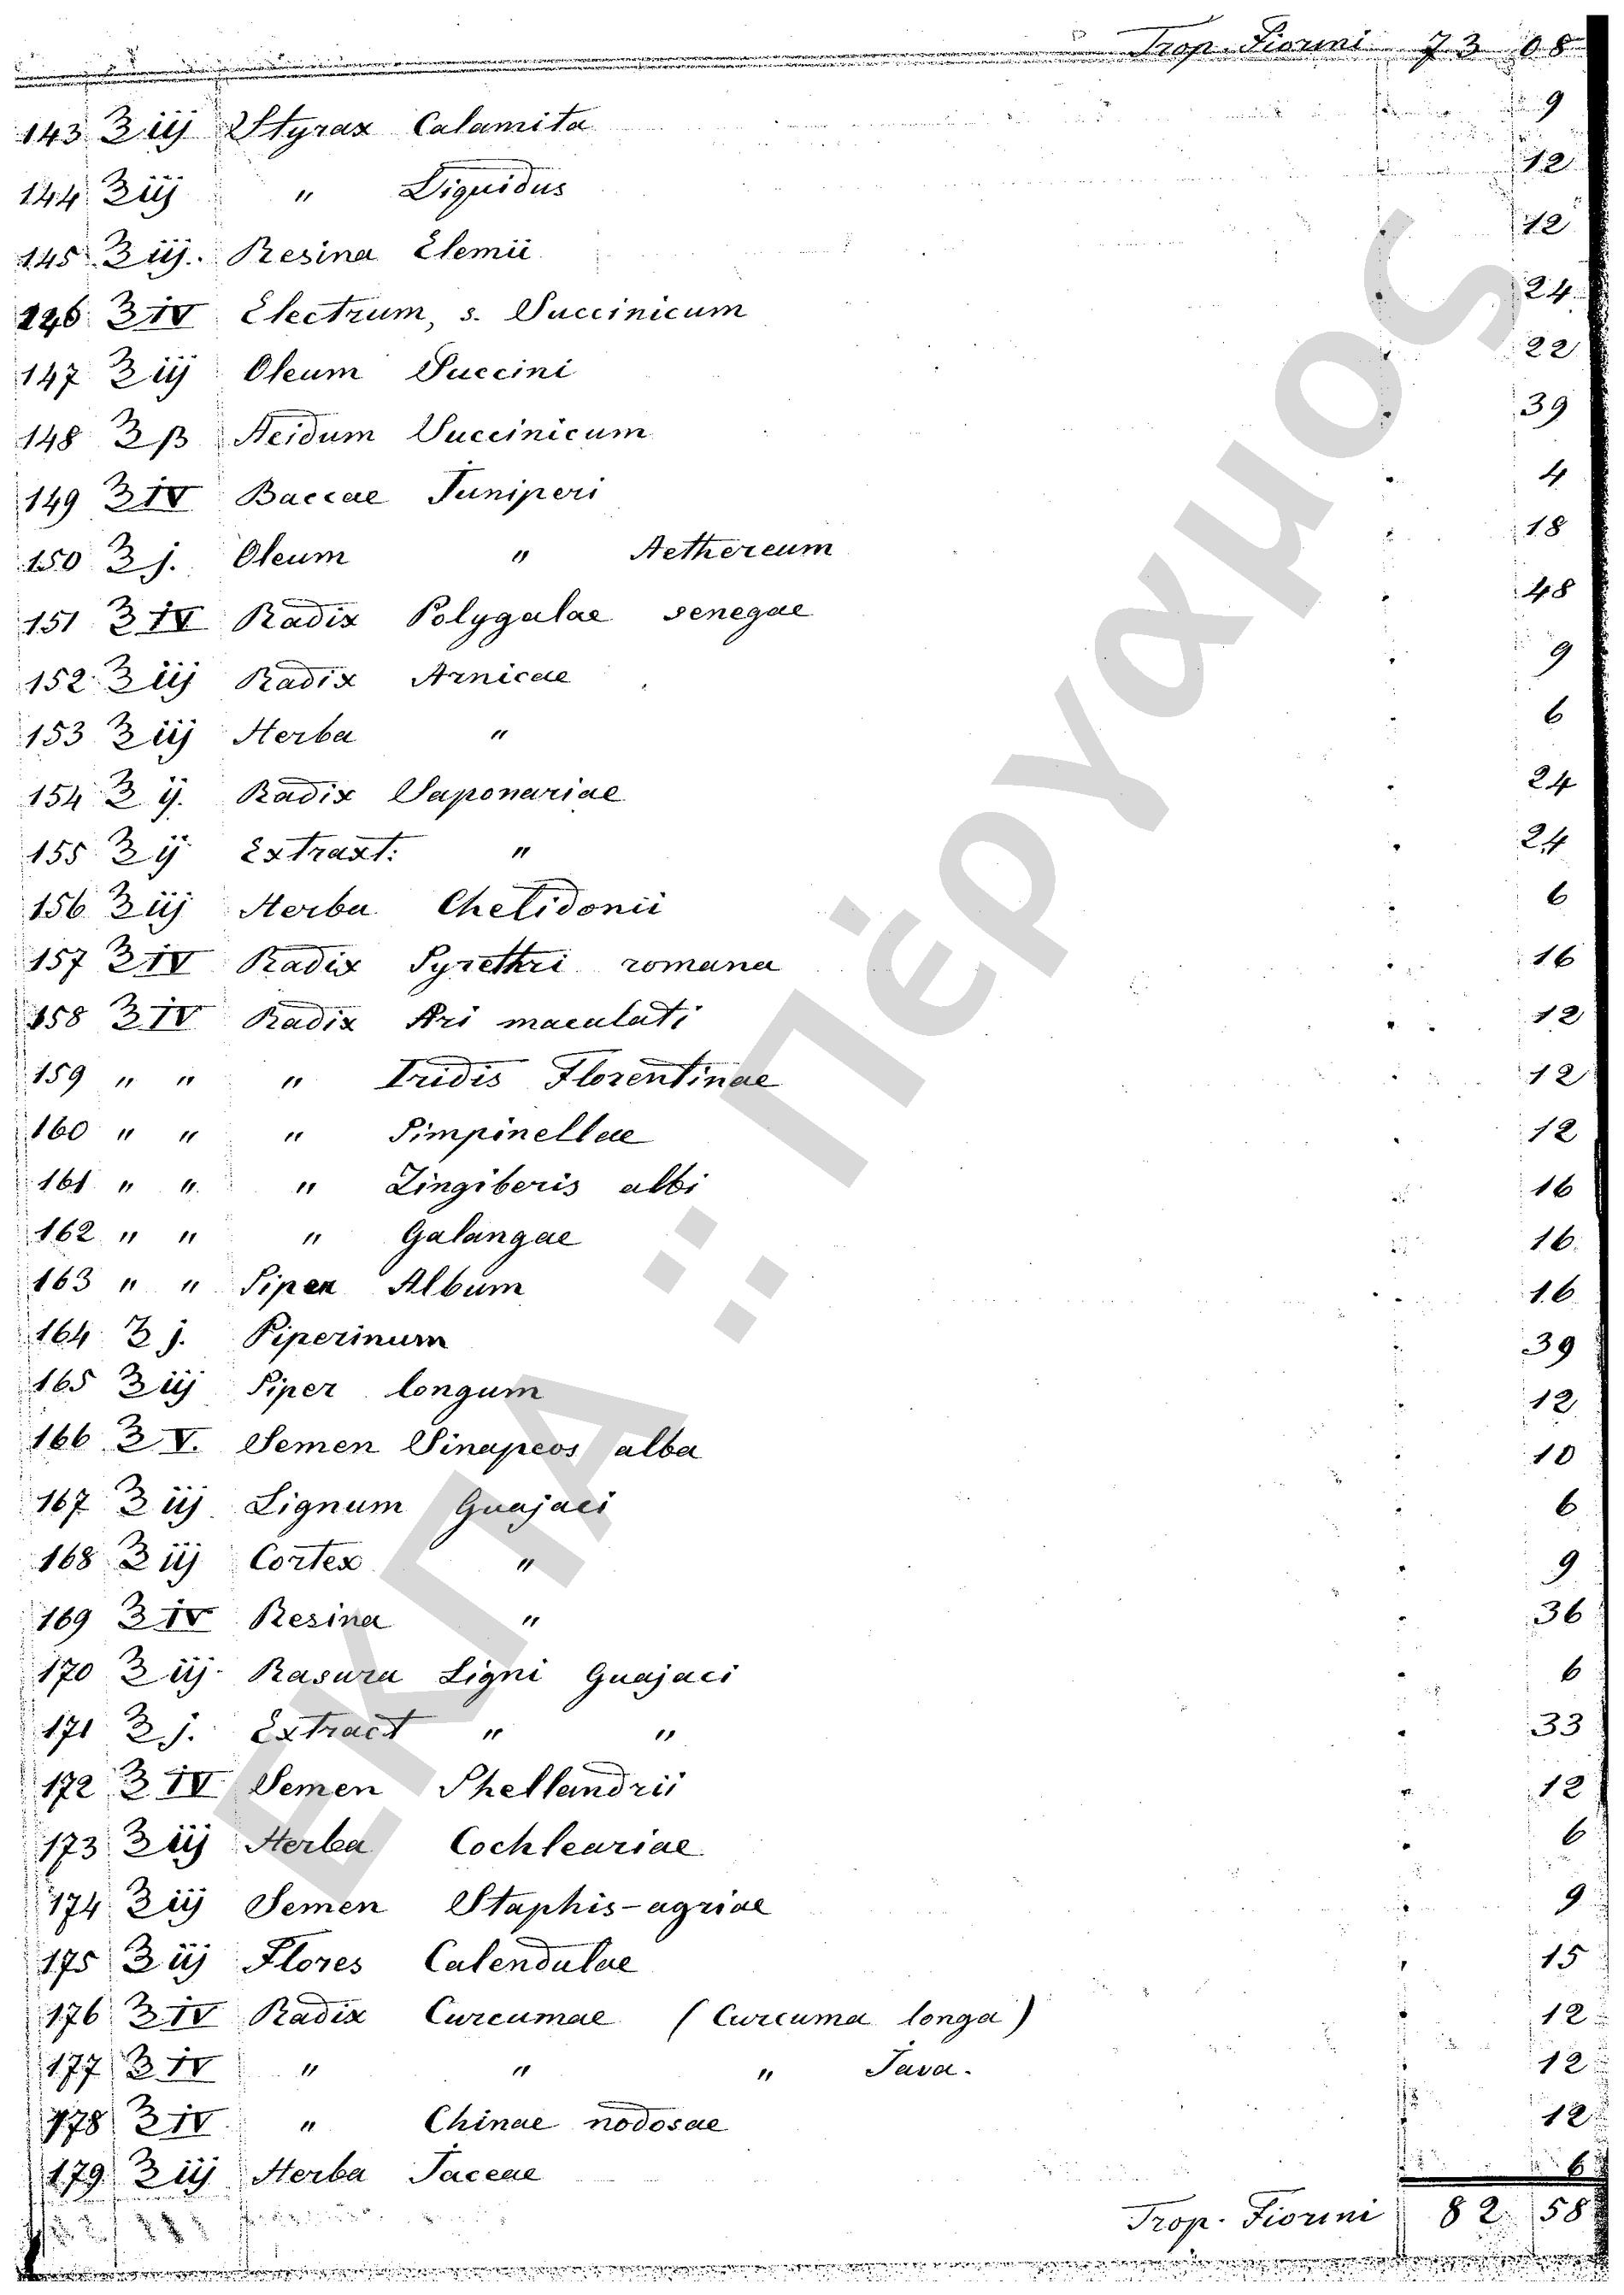 Trop. Fiorini 73 08
143 ℥ iij Styrax Calamita 9
144 ℥ iij " Liquidus 12
145 ℥ iij. Resina Elemii 12
146 ℥ IV Electrum, s. Succinicum 24
147 ℥ iij Oleum Succini 22
148 ℥ β Acidum Succinicum 39
149 ℥ IV Baccae Juniperi 4
150 ℥ j. Oleum " Aethereum 18
151 ℥ IV Radix Polygalae senegae 48
152 ℥ iij Radix Arnicae 9
153 ℥ iij Herba " 6
154 ℥ ij. Radix Saponariae 24
155 ℥ ij Extraxt: " 24
156 ℥ iij Herba Chelidonii 6
157 ℥ IV Radix Pyrethri romana 16
158 ℥ IV Radix Ari maculati 12
159 " " " Iridis Florentinae 12
160 " " " Pimpinellae 12
161 " " " Zingiberis albi 16
162 " " " Galangae 16
163 " " Piper Album 16
164 ℥ j. Piperinum 39
165 ℥ iij Piper longum 12
166 ℥ V. Semen Sinapeos alba 10
167 ℥ iij Lignum Guajaci 6
168 ℥ iij Cortex " 9
169 ℥ IV Resina " 36
170 ℥ iij. Rasura Ligni Guajaci 6
171 ℥ j. Extract " " 33
172 ℥ IV Semen Phellandrii 12
173 ℥ iij Herba Cochleariae 6
174 ℥ iij Semen Staphis-agriae 9
175 ℥ iij Flores Calendulae 15
176 ℥ IV Radix Curcumae (Curcuma longa) 12
177 ℥ IV " " " Java. 12
178 ℥ IV " Chinae nodosae 12
179 ℥ iij Herba Jaceae 6
Trop. Fiorini 82 58
ΕΚΠΑ :: Πέργαμος